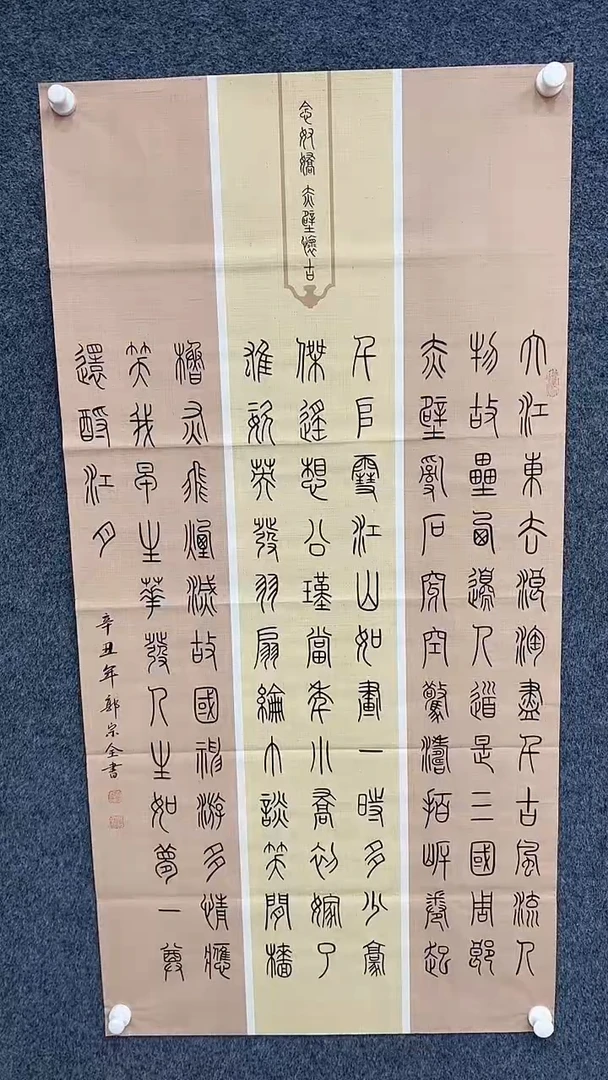 念奴嬌 赤壁懷古
大江東去浪淘盡千古風流人
物故壘西邊人道是三國周郎
赤壁亂石穿空驚濤拍岸卷起
千堆雪江山如畫一時多少豪
傑遙想公瑾當年小喬初嫁了
雄姿英發羽扇綸巾談笑間檣
櫓灰飛煙滅故國神游多情應
笑我早生華發人生如夢一尊
還酹江月
辛丑年 郭宗全書